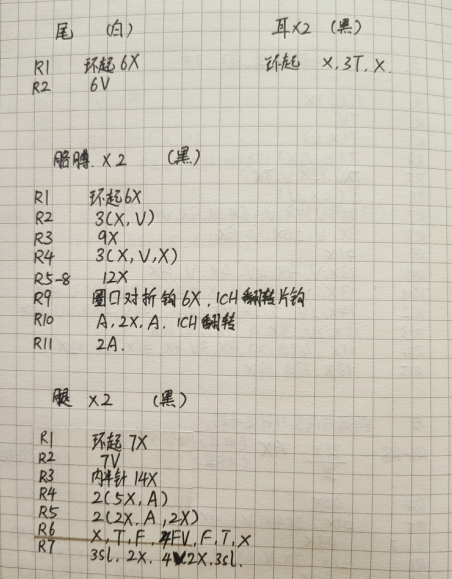 尾 (白) 耳X2 (黑)
R1 环起6X 环起 X,3T,X.
R2 6V
胳膊 X2 (黑)
R1 环起6X
R2 3(X,V)
R3 9X
R4 3(X,V,X)
R5-8 12X
R9 圈口对折钩6X,1CH翻转片钩
R10 A,2X,A.1CH翻转
R11 2A.
腿 X2 (黑)
R1 环起7X
R2 7V
R3 内半针14X
R4 2(5X,A)
R5 2(2X.A,2X)
R6 X,T,F,4FV,F,T,X
R7 3sl.2X.2X.3sl.